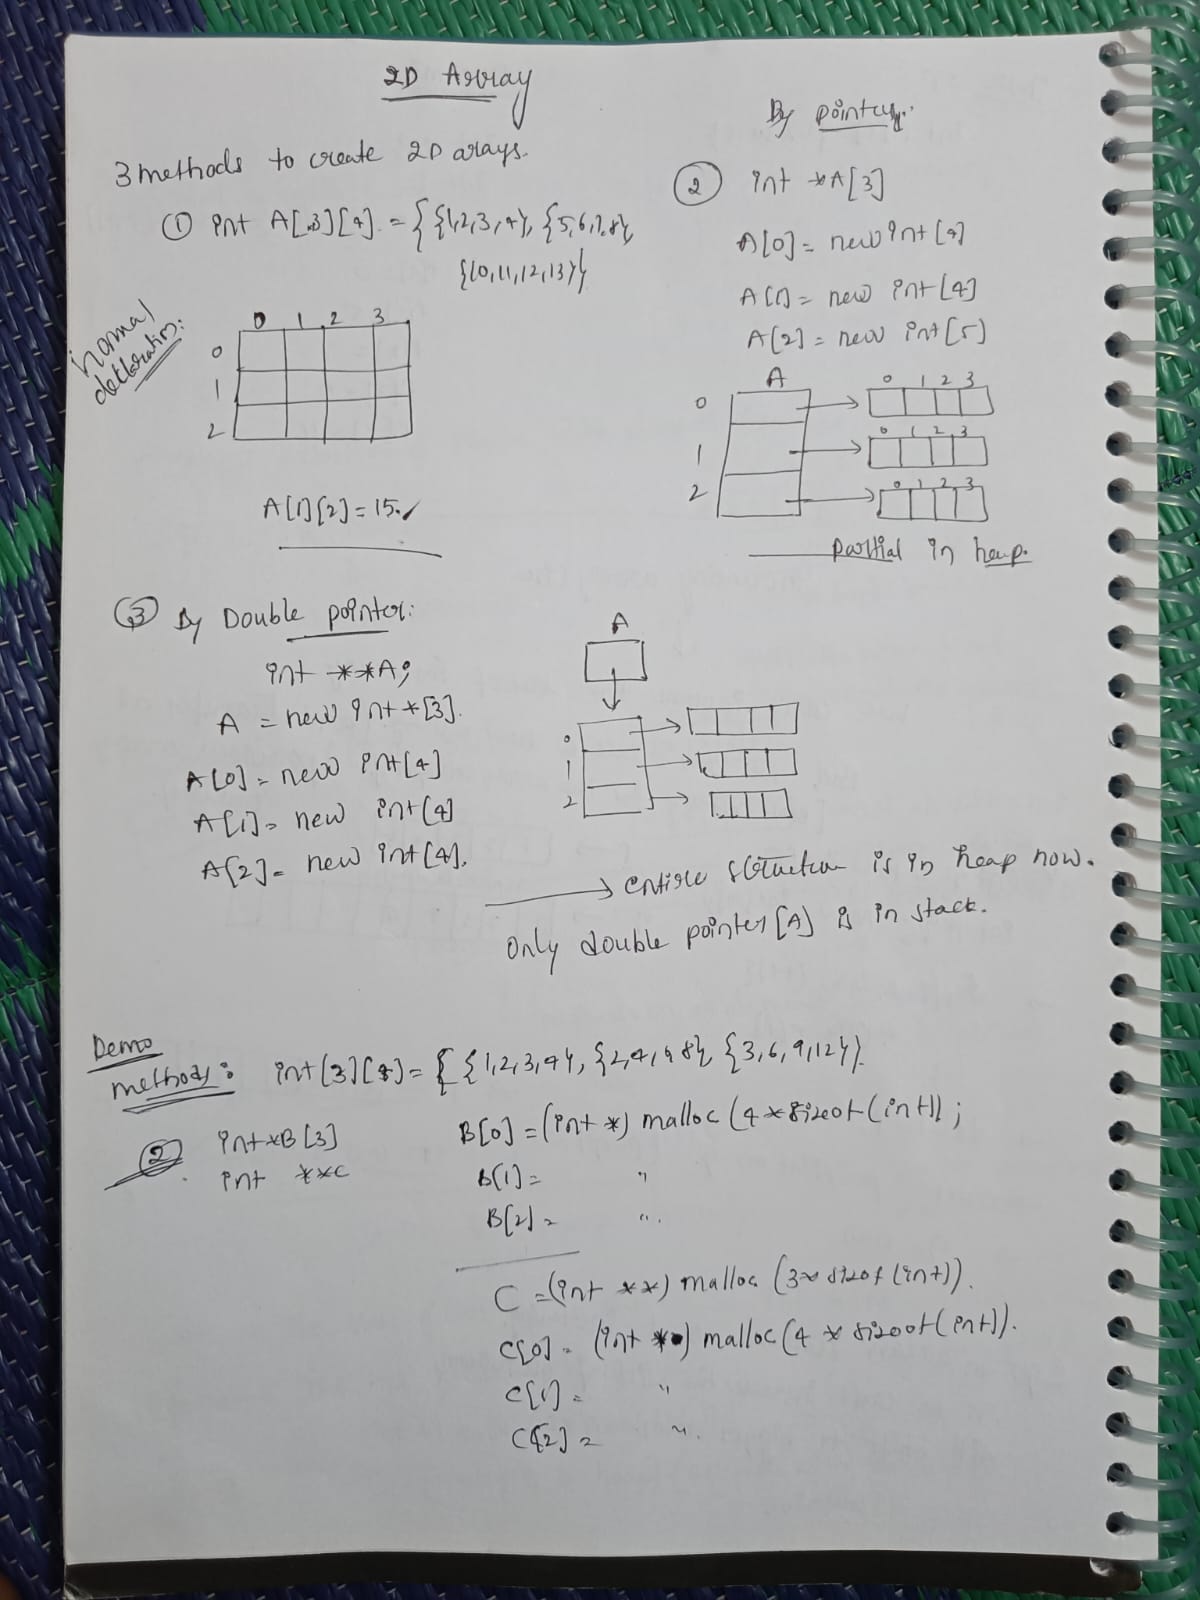 2D Array
3 methods to create 2D arays.
① int A[3][4] = { {1,2,3,4}, {5,6,7,8},
{10,11,12,13}}
normal
declaration:
0 1 2 3
0
1
2
A[1][2] = 15.
By pointer:
② int *A[3]
A[0] = new int[4]
A[1] = new int[4]
A[2] = new int[5]
A
0 1 2 3
0
0 1 2 3
1
0 1 2 3
2
Partial in heap.
③ By Double pointer:
int **A;
A = new int*[3].
A[0] = new int[4]
A[1] = new int[4]
A[2] = new int[4].
A
0
1
2
→ entire structure is in heap now.
Only double pointer [A] is in stack.
Demo
methods: int[3][4] = { {1,2,3,4}, {2,4,6,8}, {3,6,9,12}}.
② int *B[3]
int **C
B[0] = (int *) malloc (4 * sizeof(int));
B[1] = "
B[2] = ".
C = (int **) malloc (3 * sizof (int)).
C[0] = (int *) malloc (4 * sizeof(int)).
C[1] = "
C[2] = ".